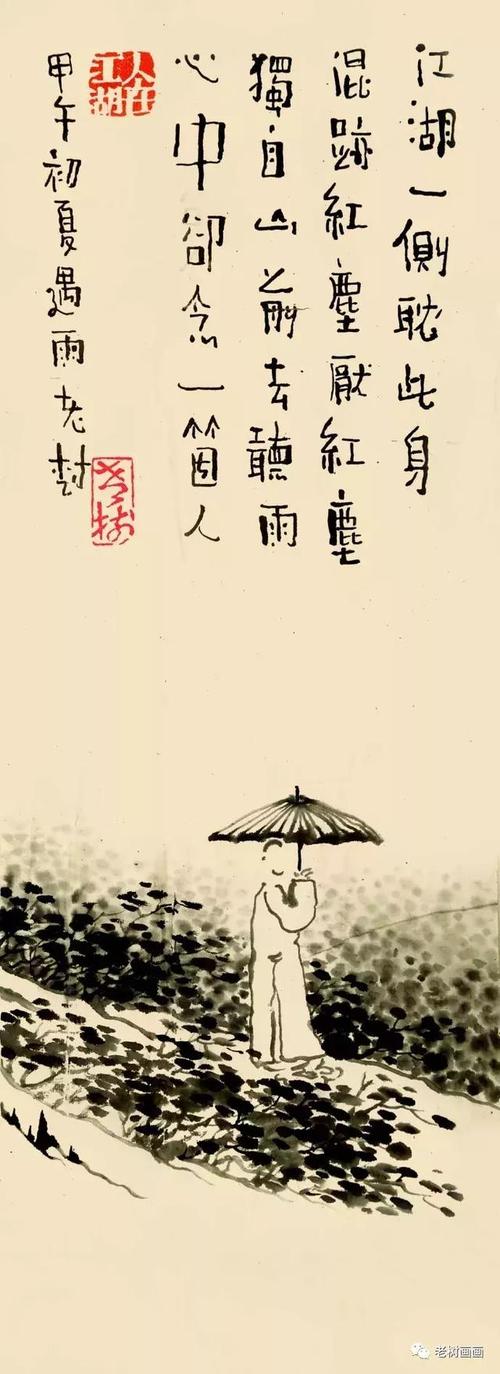 江湖一側耽此身
混跡紅塵厭紅塵
獨自山前去聽雨
心中卻念一箇人
甲午初夏遇雨老樹
人在江湖
老树
老树画画